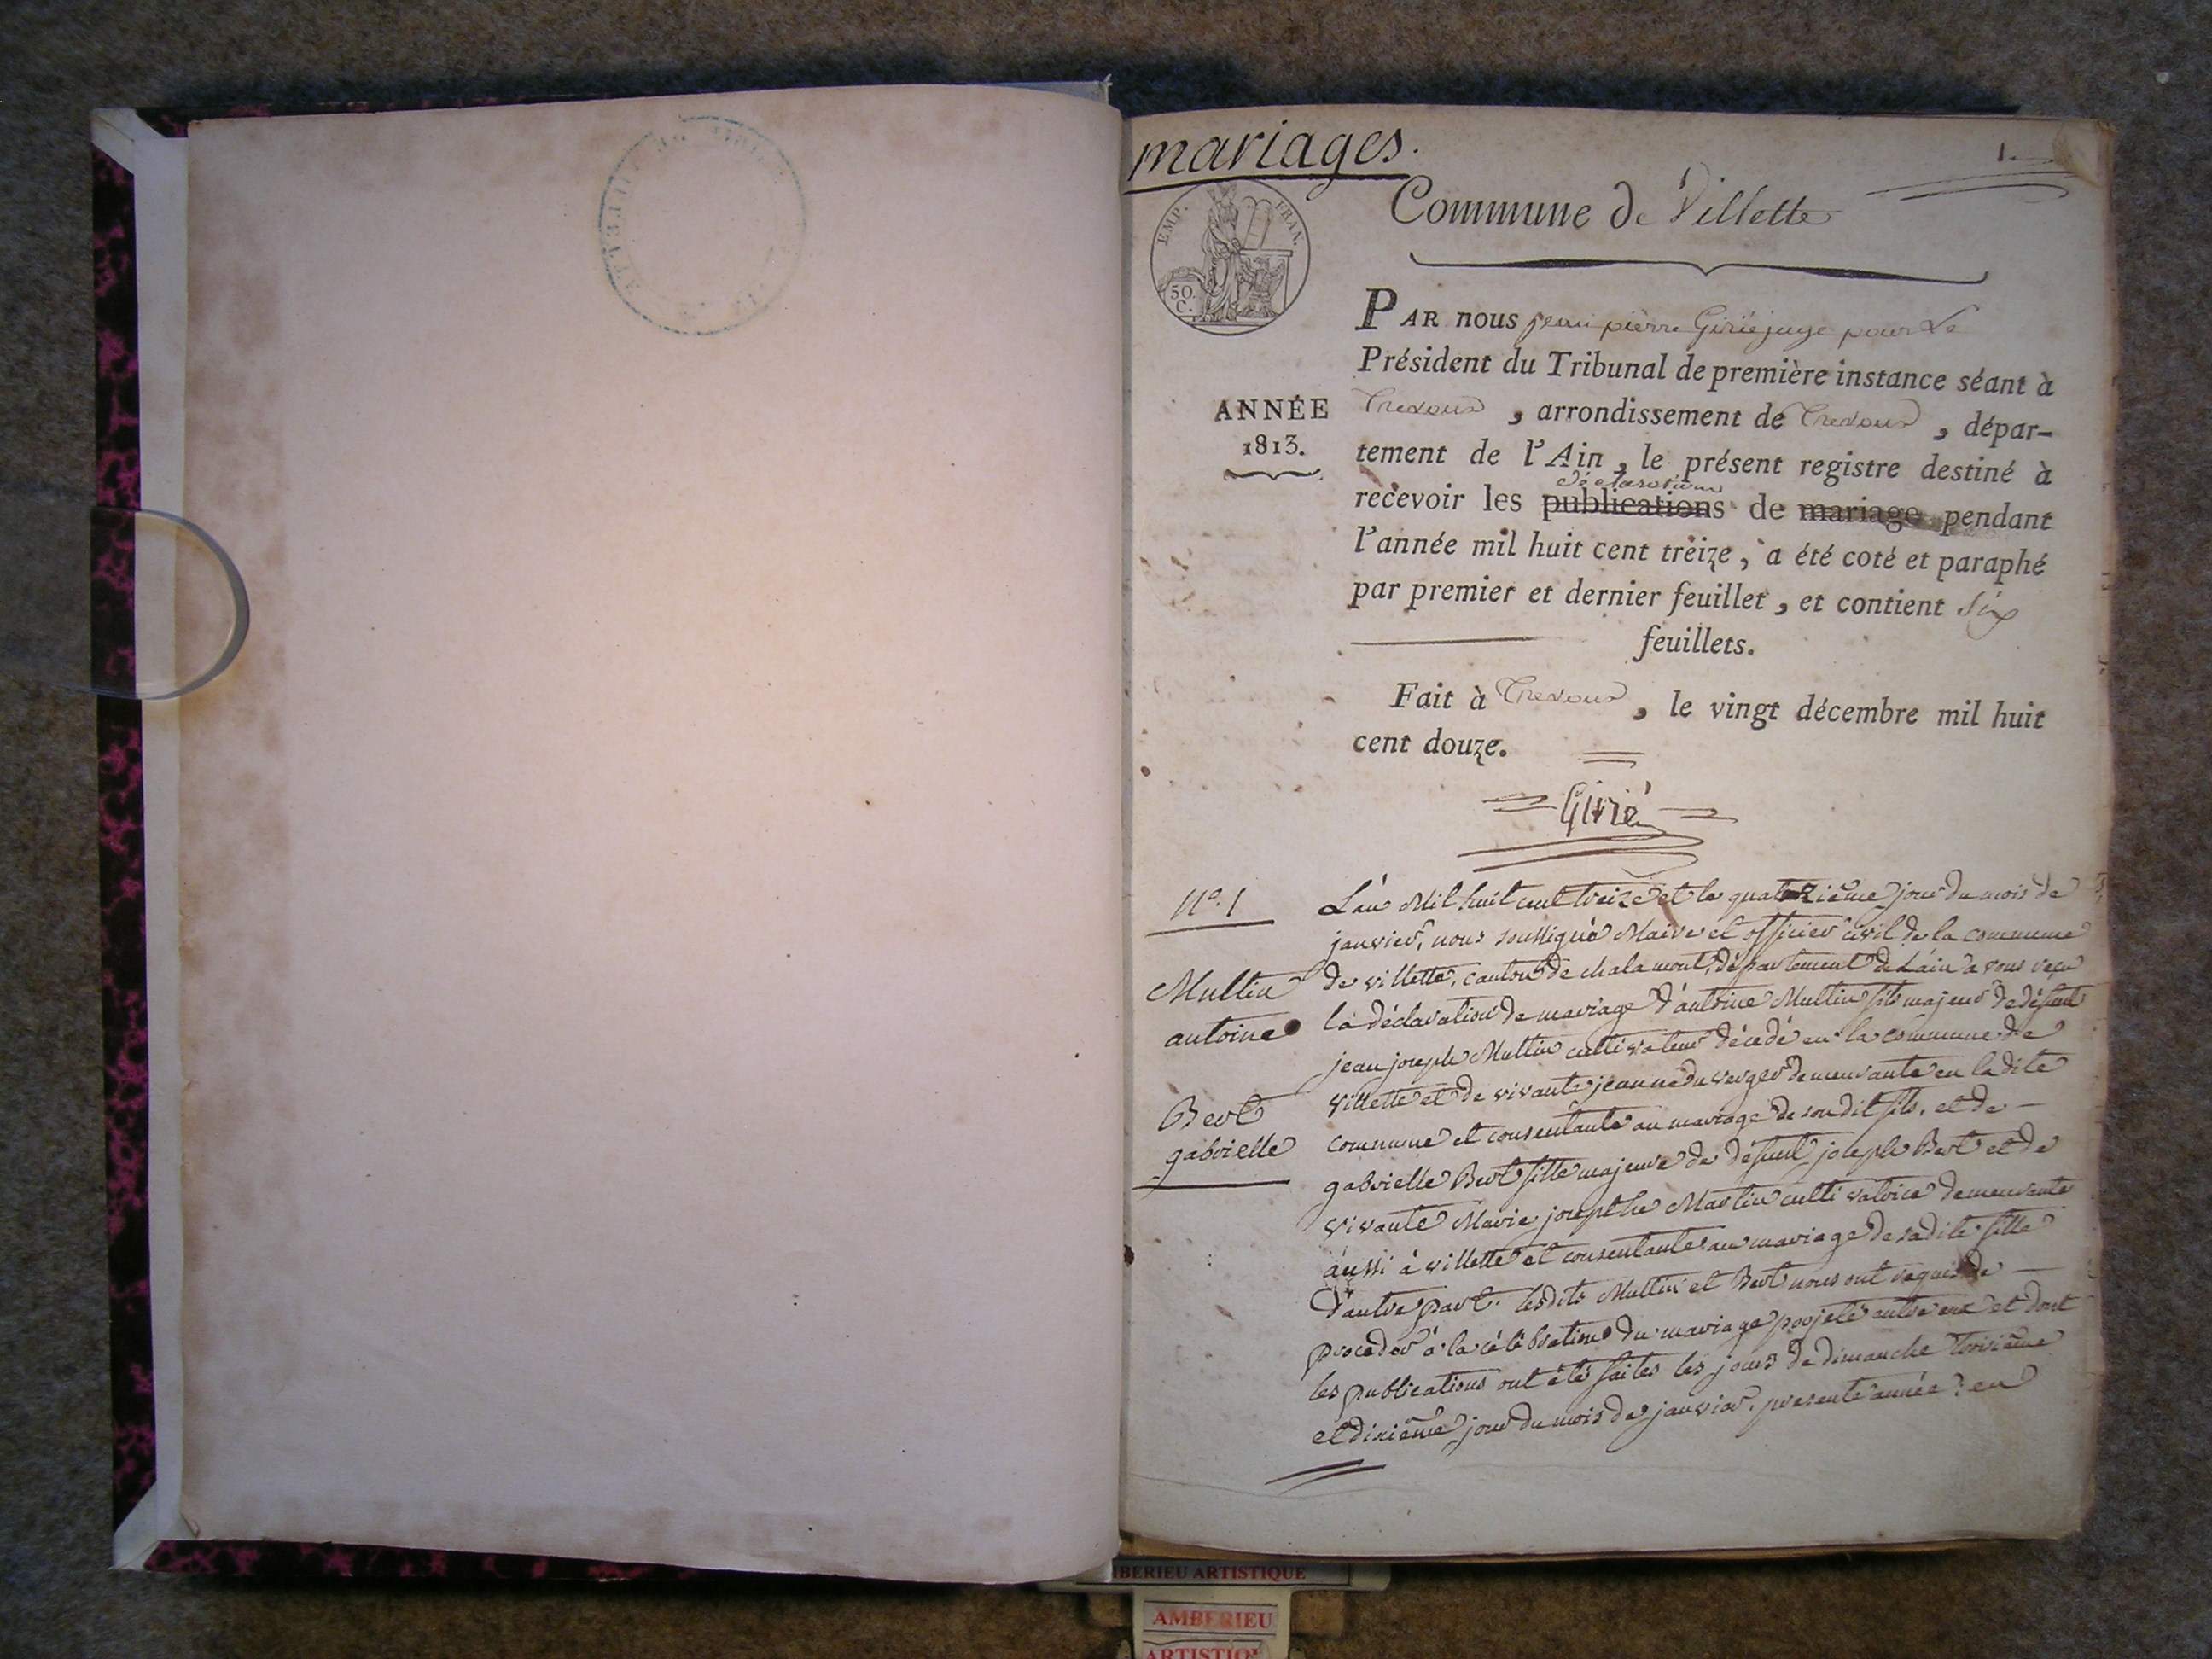 mariages.
1.
Commune de Villette
EMP. FRAN.
50. C.
PAR nous jean pierre Girié juge pour Le
Président du Tribunal de première instance séant à
ANNÉE
1813.
Trevoux, arrondissement de Trevoux, dépar-
tement de l'Ain, le présent registre destiné à
déclarations
recevoir les publications de mariage pendant
l'année mil huit cent treize, a été coté et paraphé
par premier et dernier feuillet, et contient six
feuillets.
Fait à Trevoux, le vingt décembre mil huit
cent douze.
Girié
N°. 1
Multin
antoine
Bert
gabrielle
L'an Mil huit cent treize et le quatorzième jour du mois de
janvier, nous soussigné Maire et officier civil de la commune
de villette, canton de chalamont, département de L'ain avons reçu
la déclaration de mariage d'antoine Multin fils majeur de défunt
jean joseph Multin cultivateur décédé en la commune de
villette et de vivante jeanne du verger demeurante en la dite
commune et consentante au mariage de son dit fils, et de
gabrielle Bert fille majeure de défunt joseph Bert et de
vivante Marie josephe Martin cultivatrice demeurante
aussi à villette et consentante au mariage de sadite fille
d'autre part. lesdits Multin et Bert nous ont requis de
proceder à la célébration du mariage projeté entre eux et dont
les publications ont été faites les jours de dimanche troisième
et dixième jour du mois de janvier, presente année: en
AMBERIEU ARTISTIQUE
AMBERIEU
ARTISTIQ